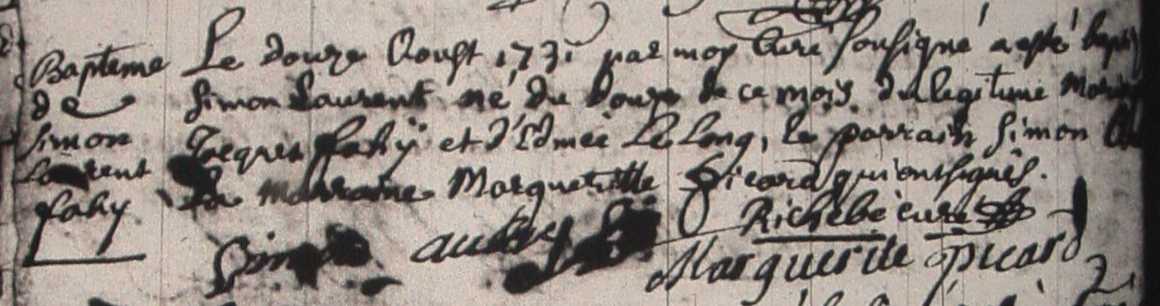 Bapteme
de
Simon
Laurent
fahy
Le douze Aoust 1731 par moy Curé sousigné a esté bapti
Simon Laurent né du douze de ce mois du legitime Mariag
Jacques fahy et d'Edmée Le Long, le parrain Simon
La marraine Margueritte Picard qui ont signés.
Simon aubry Richebé curé
Marguerite picard